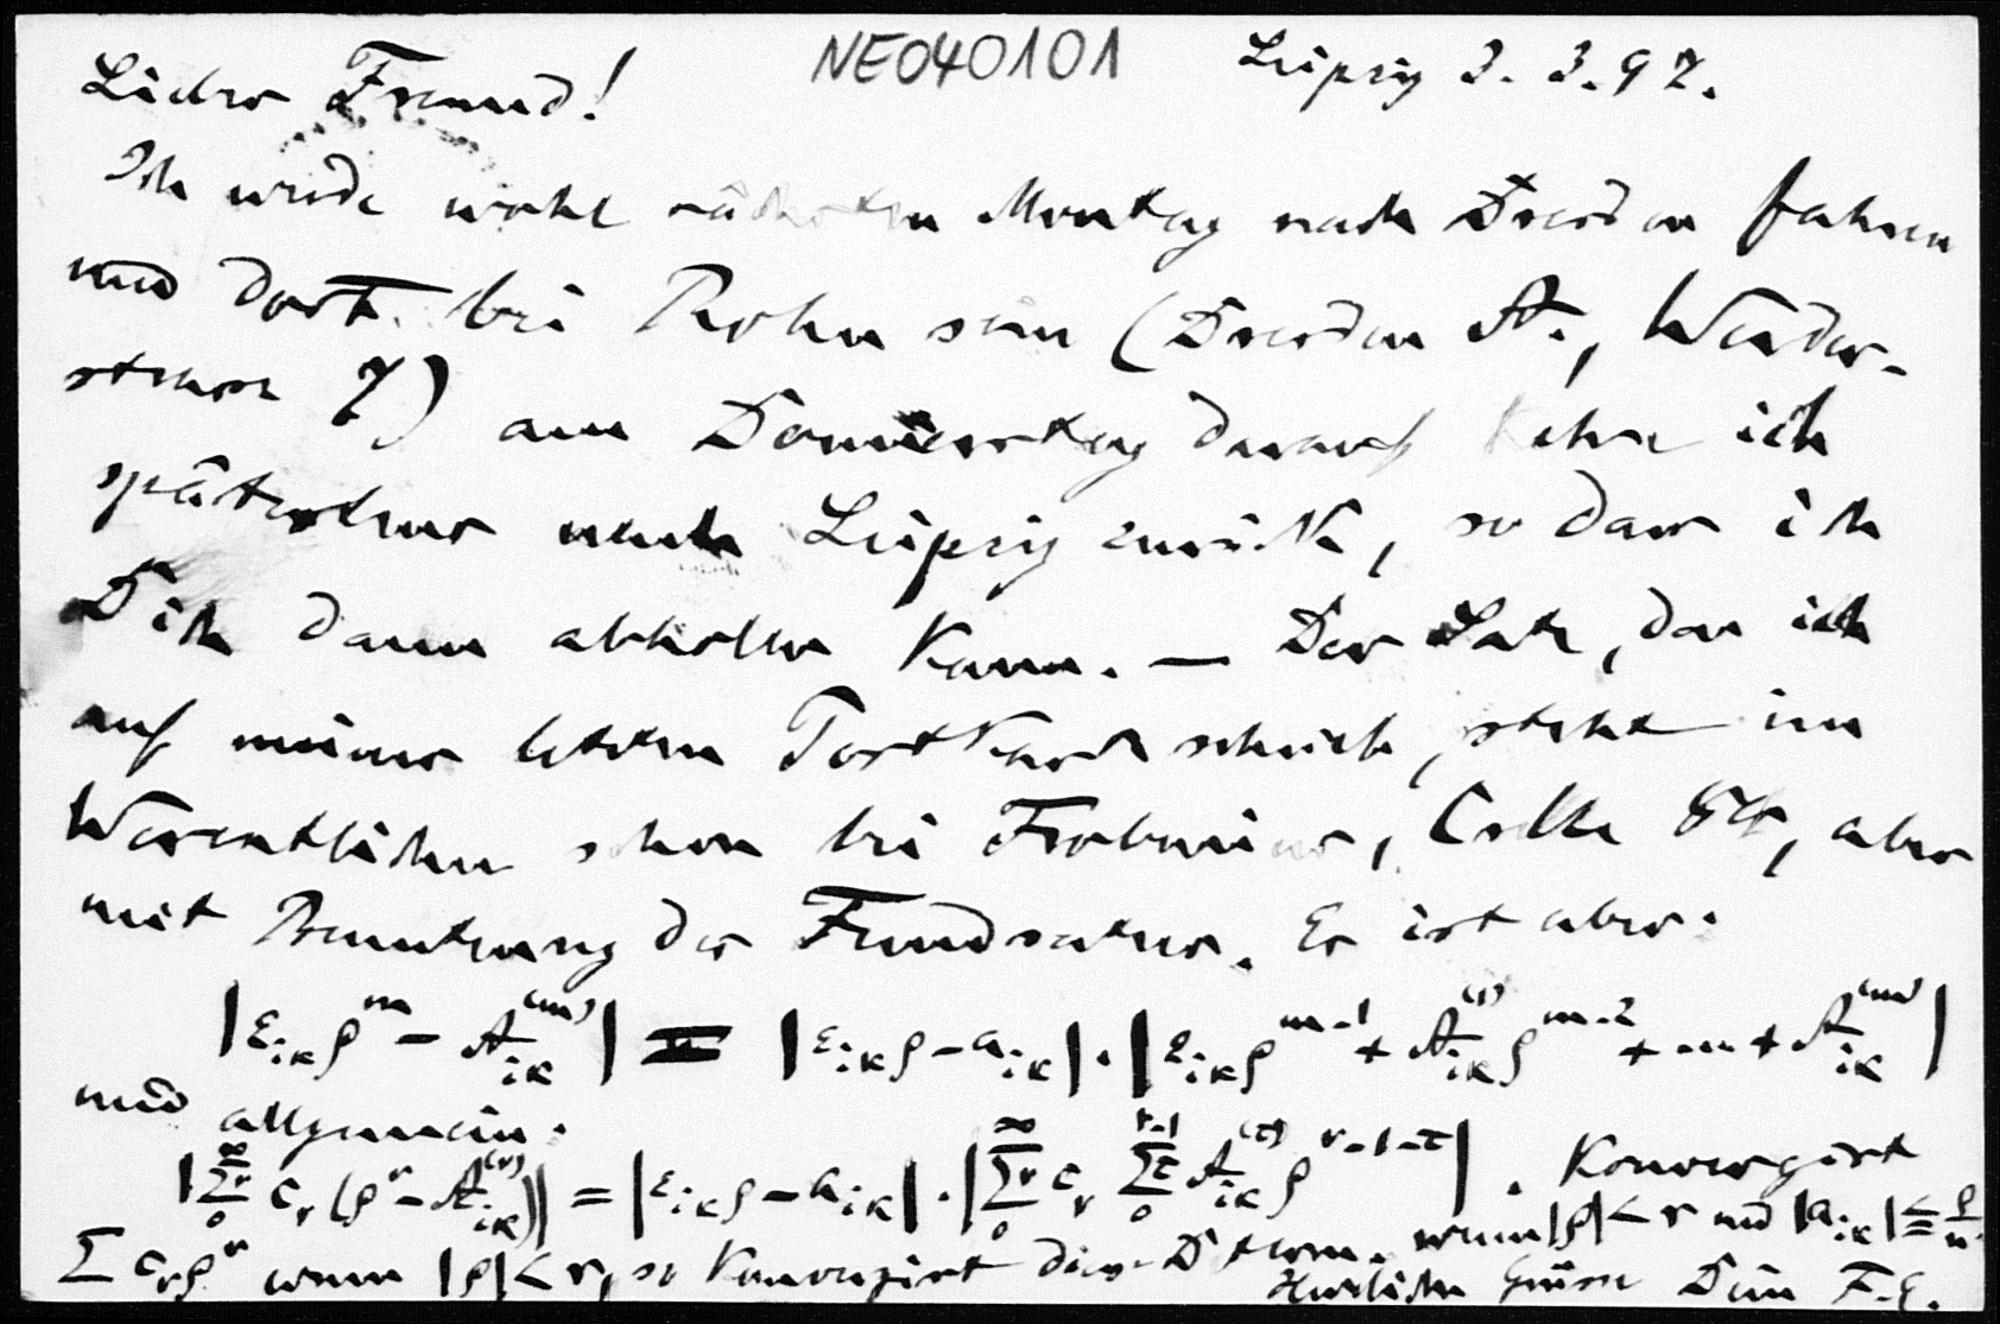 NE040101
Leipzig 3. 3. 97.
Lieber Freund!
Ich werde wohl nächsten Montag nach Dresden fahren
und dort bei Rohn sein (Dresden A., Werder-
strasse 7) am Donnerstag darauf kehre ich
spätestens nach Leipzig zurück, so dass ich
Dich dann abholen kann. — Der Satz, den ich
auf meiner letzten Postkarte schrieb, steht im
Wesentlichen schon bei Frobenius, Crelle 84, aber
mit Benutzung des Fundsatzes. Es ist aber:
|ε_{iκ}ρ^m − A_{iκ}^{(m)}| = |ε_{iκ}ρ − a_{iκ}| · |ε_{iκ}ρ^{m-1} + A_{iκ}^{(1)}ρ^{m-2} + ... + A_{iκ}^{(m)}|
und allgemein:
|∑_0^∞ν c_ν(ρ^ν − A_{iκ}^{(ν)})| = |ε_{iκ}ρ − a_{iκ}| · |∑_0^∞ν c_ν ∑_0^{ν-1}τ A_{iκ}^{(τ)}ρ^{ν-1-τ}|. Konvergirt
∑ c_νρ^ν wenn |ρ| < r, so konvergirt diese Dterm. wenn |ρ| < r und |a_{iκ}| ≦ ρ/n.
Herzliche Grüsse Dein F. E.